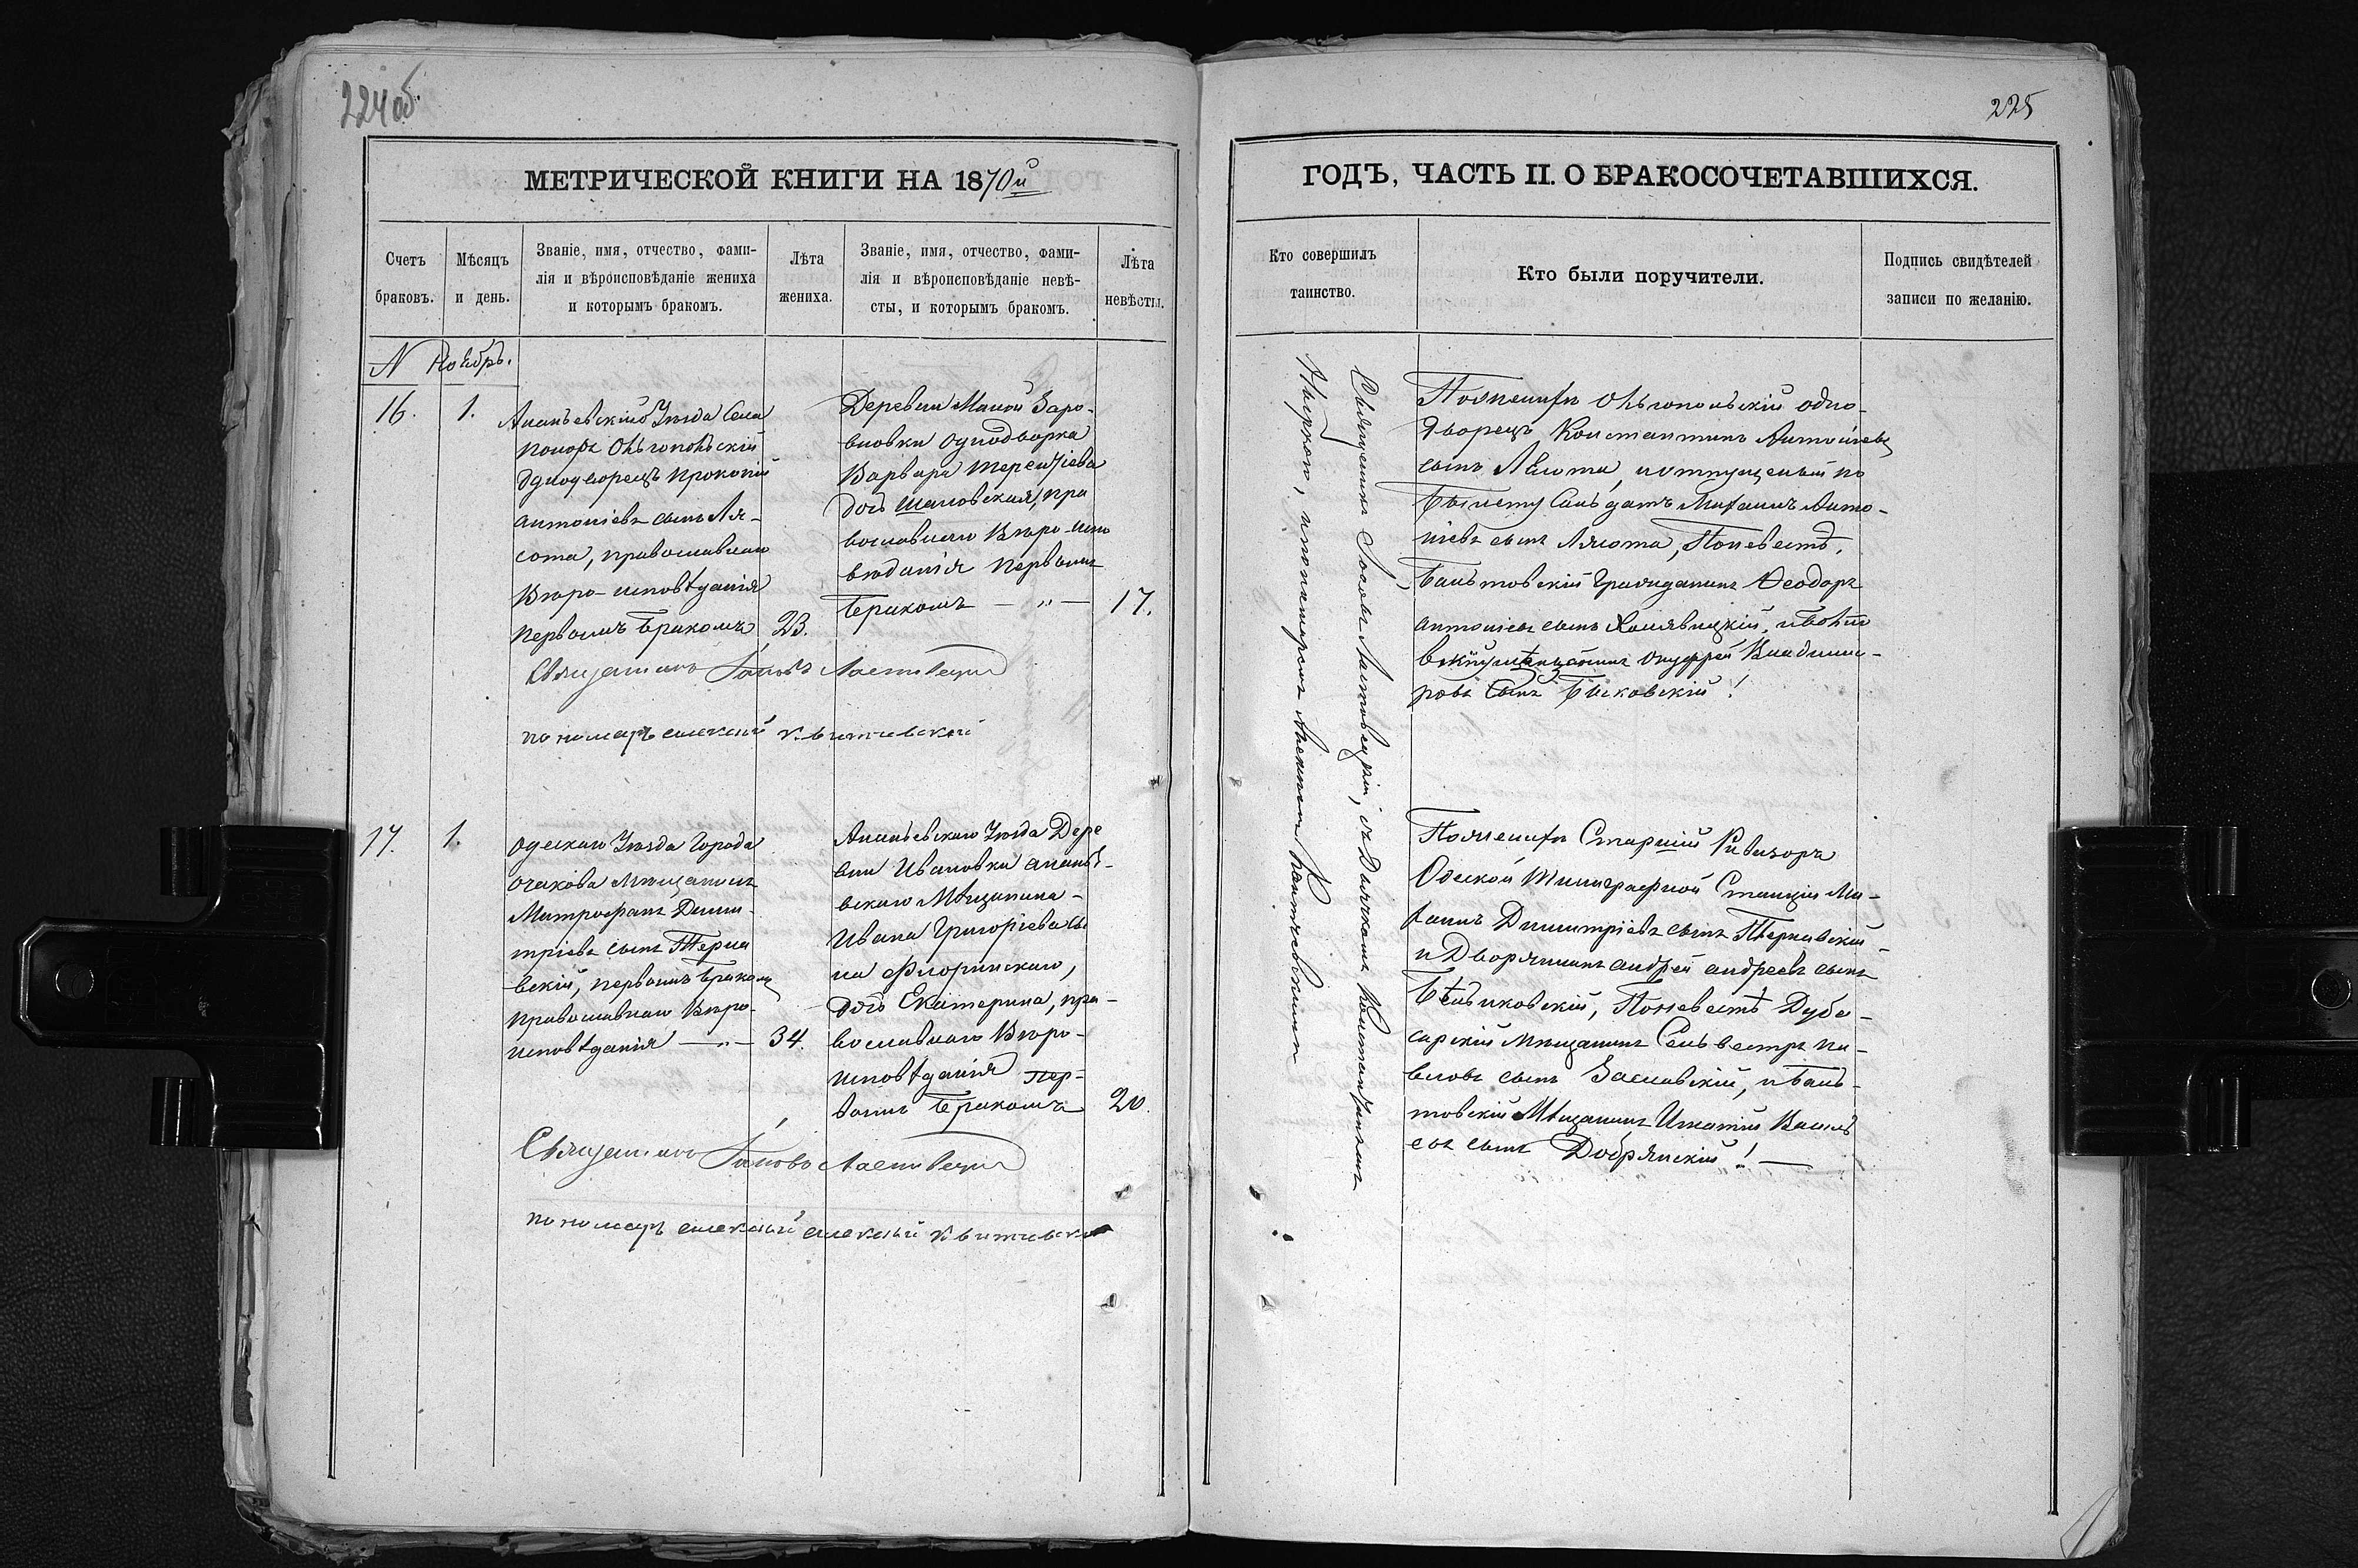 224 об.
МЕТРИЧЕСКОЙ КНИГИ НА 1870й
Счетъ браковъ.
Мѣсяцъ и день.
Званіе, имя, отчество, фами-
лія и вѣроисповѣданіе жениха
и которымъ бракомъ.
Лѣта жениха.
Званіе, имя, отчество, фами-
лія и вѣроисповѣданіе невѣ-
сты, и которымъ бракомъ.
Лѣта невѣсты.
N Ноябрь.
16.
1.
Ананьевскаго Уѣзда Села
однодворецъ Прокопій
Антоніевъ сынъ Ля-
сота, православнаго
Вѣро-исповѣданія
первымъ бракомъ
23.
Деревни Малой
однодворка
Варвара Терентіева
дочь Шановская, пра
вославнаго Вѣро-испо
вѣданія первымъ
бракомъ — „ —
17.
Священникъ Іаковъ
пономарь Алексѣй
17.
1.
Одескаго Уѣзда Города
Очакова Мѣщанинъ
Митрофанъ Дими-
тріевъ сынъ Терна
вскій, первымъ бракомъ
православнаго Вѣро-
исповѣданія — „ —
34.
Ананьевскаго Уѣзда Дере
вни Ивановки ананье-
вскаго Мѣщанина
Ивана Григоріева сы
на Флоринскаго,
дочь Екатерина, пра-
вославнаго Вѣро-
исповѣданія пер-
вымъ бракомъ
20.
Священникъ Іаковъ
пономарь Алексѣй Алексѣй
225
ГОДЪ, ЧАСТЬ II. О БРАКОСОЧЕТАВШИХСЯ.
Кто совершилъ таинство.
Кто были поручители.
Подпись свидѣтелей записи по желанію.
Священникъ Іаковъ съ Дьячкомъ Константиномъ
и пономаремъ Алексѣемъ
По женихѣ одно-
дворецъ Константинъ Антоніевъ
сынъ Лясота, и отпущеный по
билету Сольдатъ Михаилъ Анто-
ніевъ сынъ Лясота, По невестѣ,
Бальтовскій Гражданинъ Феодоръ
Антоніевъ сынъ
Онуфрій Владими-
ровъ Сынъ Быковскій!
По женихѣ Старшій Ревизоръ
Одеской Телеграфной Станціи Ми-
хаилъ Димитріевъ сынъ Тернавскій
и Дворянинъ андрей андреевъ сынъ
По невестѣ Дубо-
сарскій Мѣщанинъ Сельвестръ Па-
вловъ сынъ Заславскій, и Баль-
товскій Мѣщанинъ Игнатій Василь
евъ сынъ Добрянскій! —